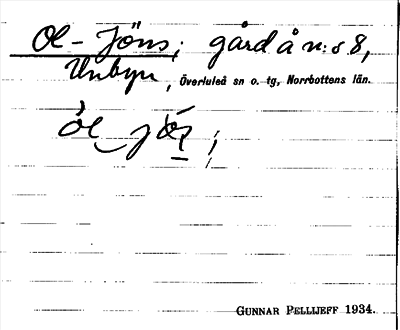 Ol-Jöns; gård å n:s 8,
Unbyn, Överluleå sn o. tg, Norrbottens län.
GUNNAR PELLIJEFF 1934.